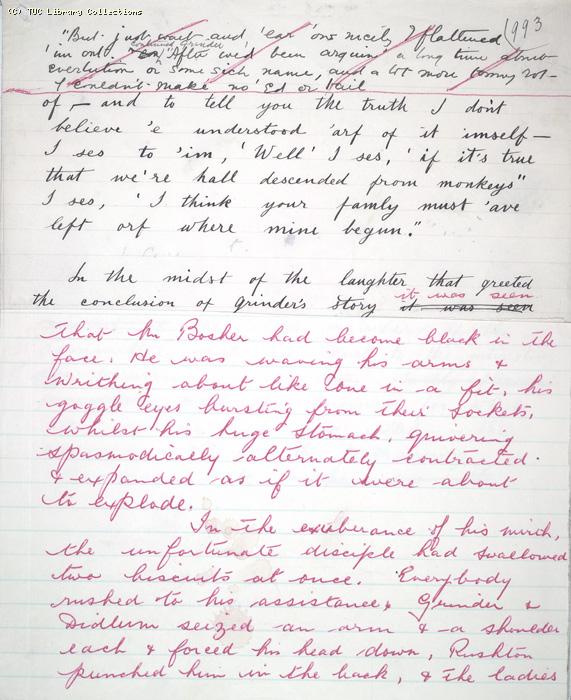 (C) TUC Library Collections
993
"But just wait and 'ear 'ow nicely I flattened
continued Grinder
'im out, "After we'd been arguin' a long time about
everlution or some sich name, and a lot more tommy rot
I couldn't make no 'ed or tail
of, — and to tell you the truth I don't
believe 'e understood 'arf of it imself —
I ses to 'im, 'Well' I ses, 'if it's true
that we're hall descended from monkeys"
I ses, 'I think your famly must 'ave
left orf where mine begun."
In the midst of the laughter that greeted
it was seen
the conclusion of Grinder's story it was seen
that Mr Bosher had become black in the
face. He was waving his arms &
writhing about like one in a fit, his
goggle eyes bursting from their sockets,
whilst his huge stomach, quivering
spasmodically alternately contracted
& expanded as if it were about
to explode.
In the exuberance of his mirth,
the unfortunate disciple had swallowed
two biscuits at once. Everybody
rushed to his assistance, Grinder &
Didlum seized an arm & a shoulder
each & forced his head down, Rushton
punched him in the back, & the ladies